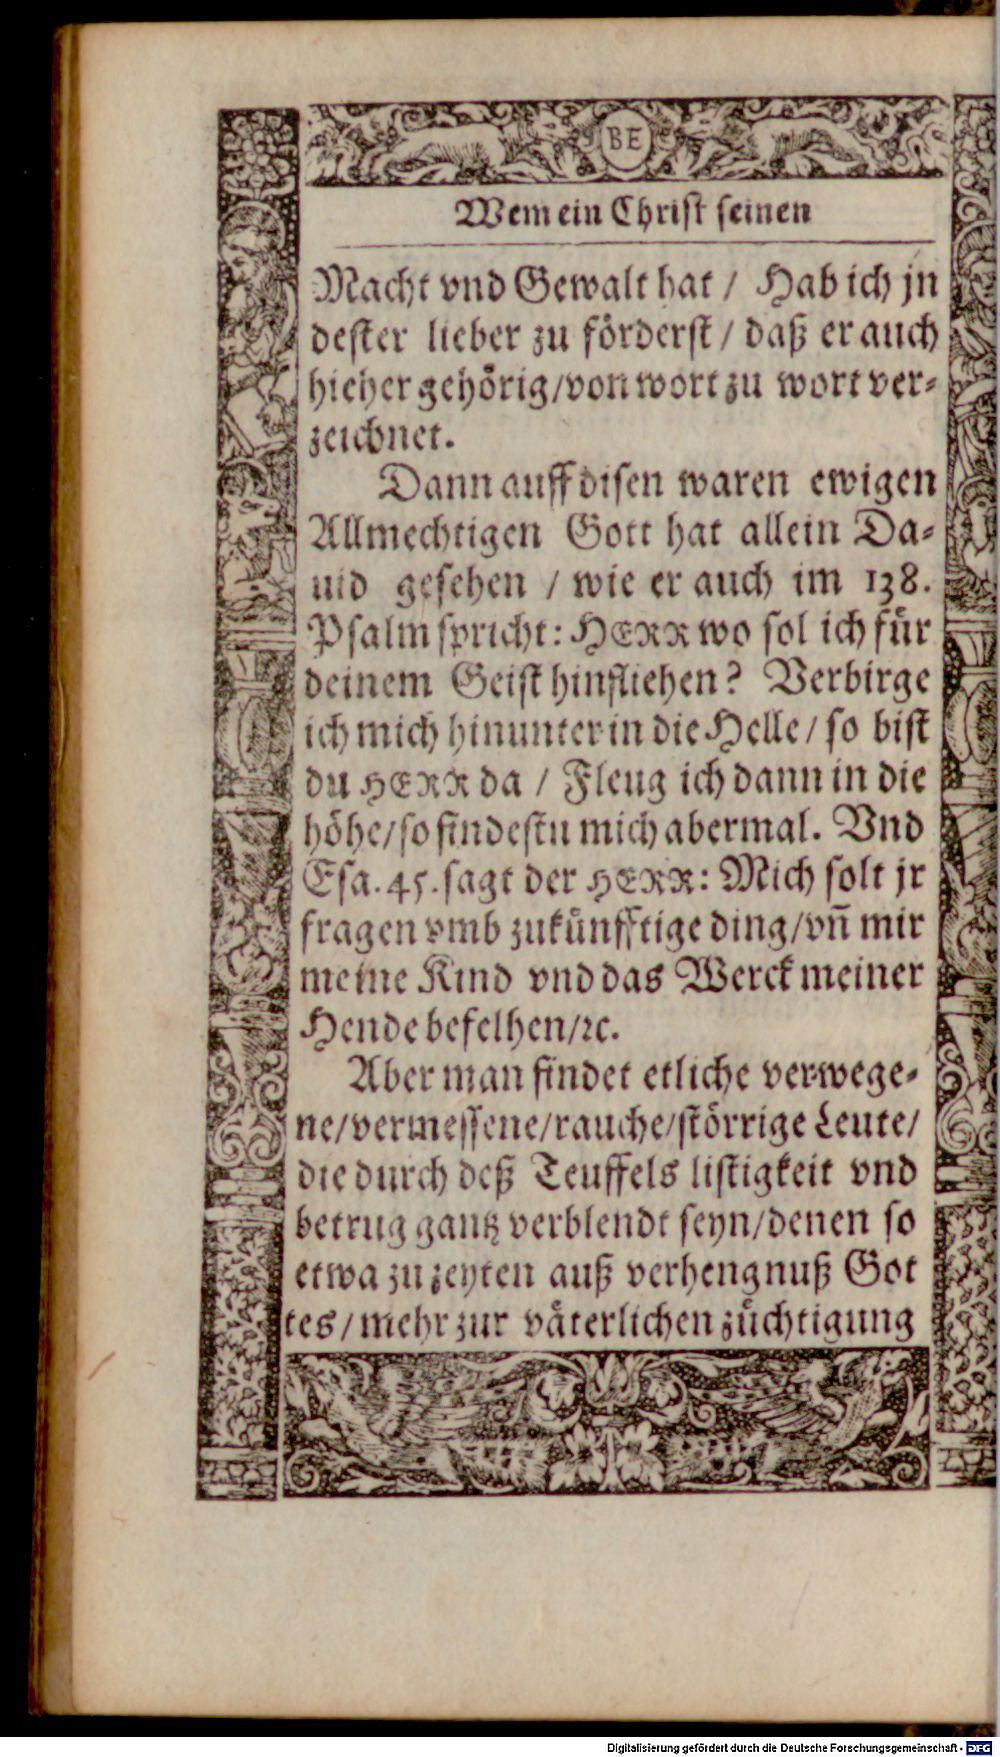 BE
Wem ein Christ seinen
Macht vnd Gewalt hat / Hab ich jn
dester lieber zu förderst / daß er auch
hieher gehörig/von wort zu wort ver-
zeichnet.
Dann auff disen waren ewigen
Allmechtigen Gott hat allein Da-
uid gesehen / wie er auch im 138.
Psalm spricht: HERR wo sol ich für
deinem Geist hinfliehen? Verbirge
ich mich hinunter in die Helle / so bist
du HERR da / Fleug ich dann in die
höhe/so findestu mich abermal. Vnd
Esa. 45. sagt der HERR: Mich solt jr
fragen vmb zukünfftige ding/vn̄ mir
meine Kind vnd das Werck meiner
Hende befelhen/ꝛc.
Aber man findet etliche verwege-
ne/vermessene/rauche/störrige Leute/
die durch deß Teuffels listigkeit vnd
betrug gantz verblendt seyn/denen so
etwa zu zeyten auß verhengnuß Got
tes / mehr zur väterlichen züchtigung
Digitalisierung gefördert durch die Deutsche Forschungsgemeinschaft - DFG